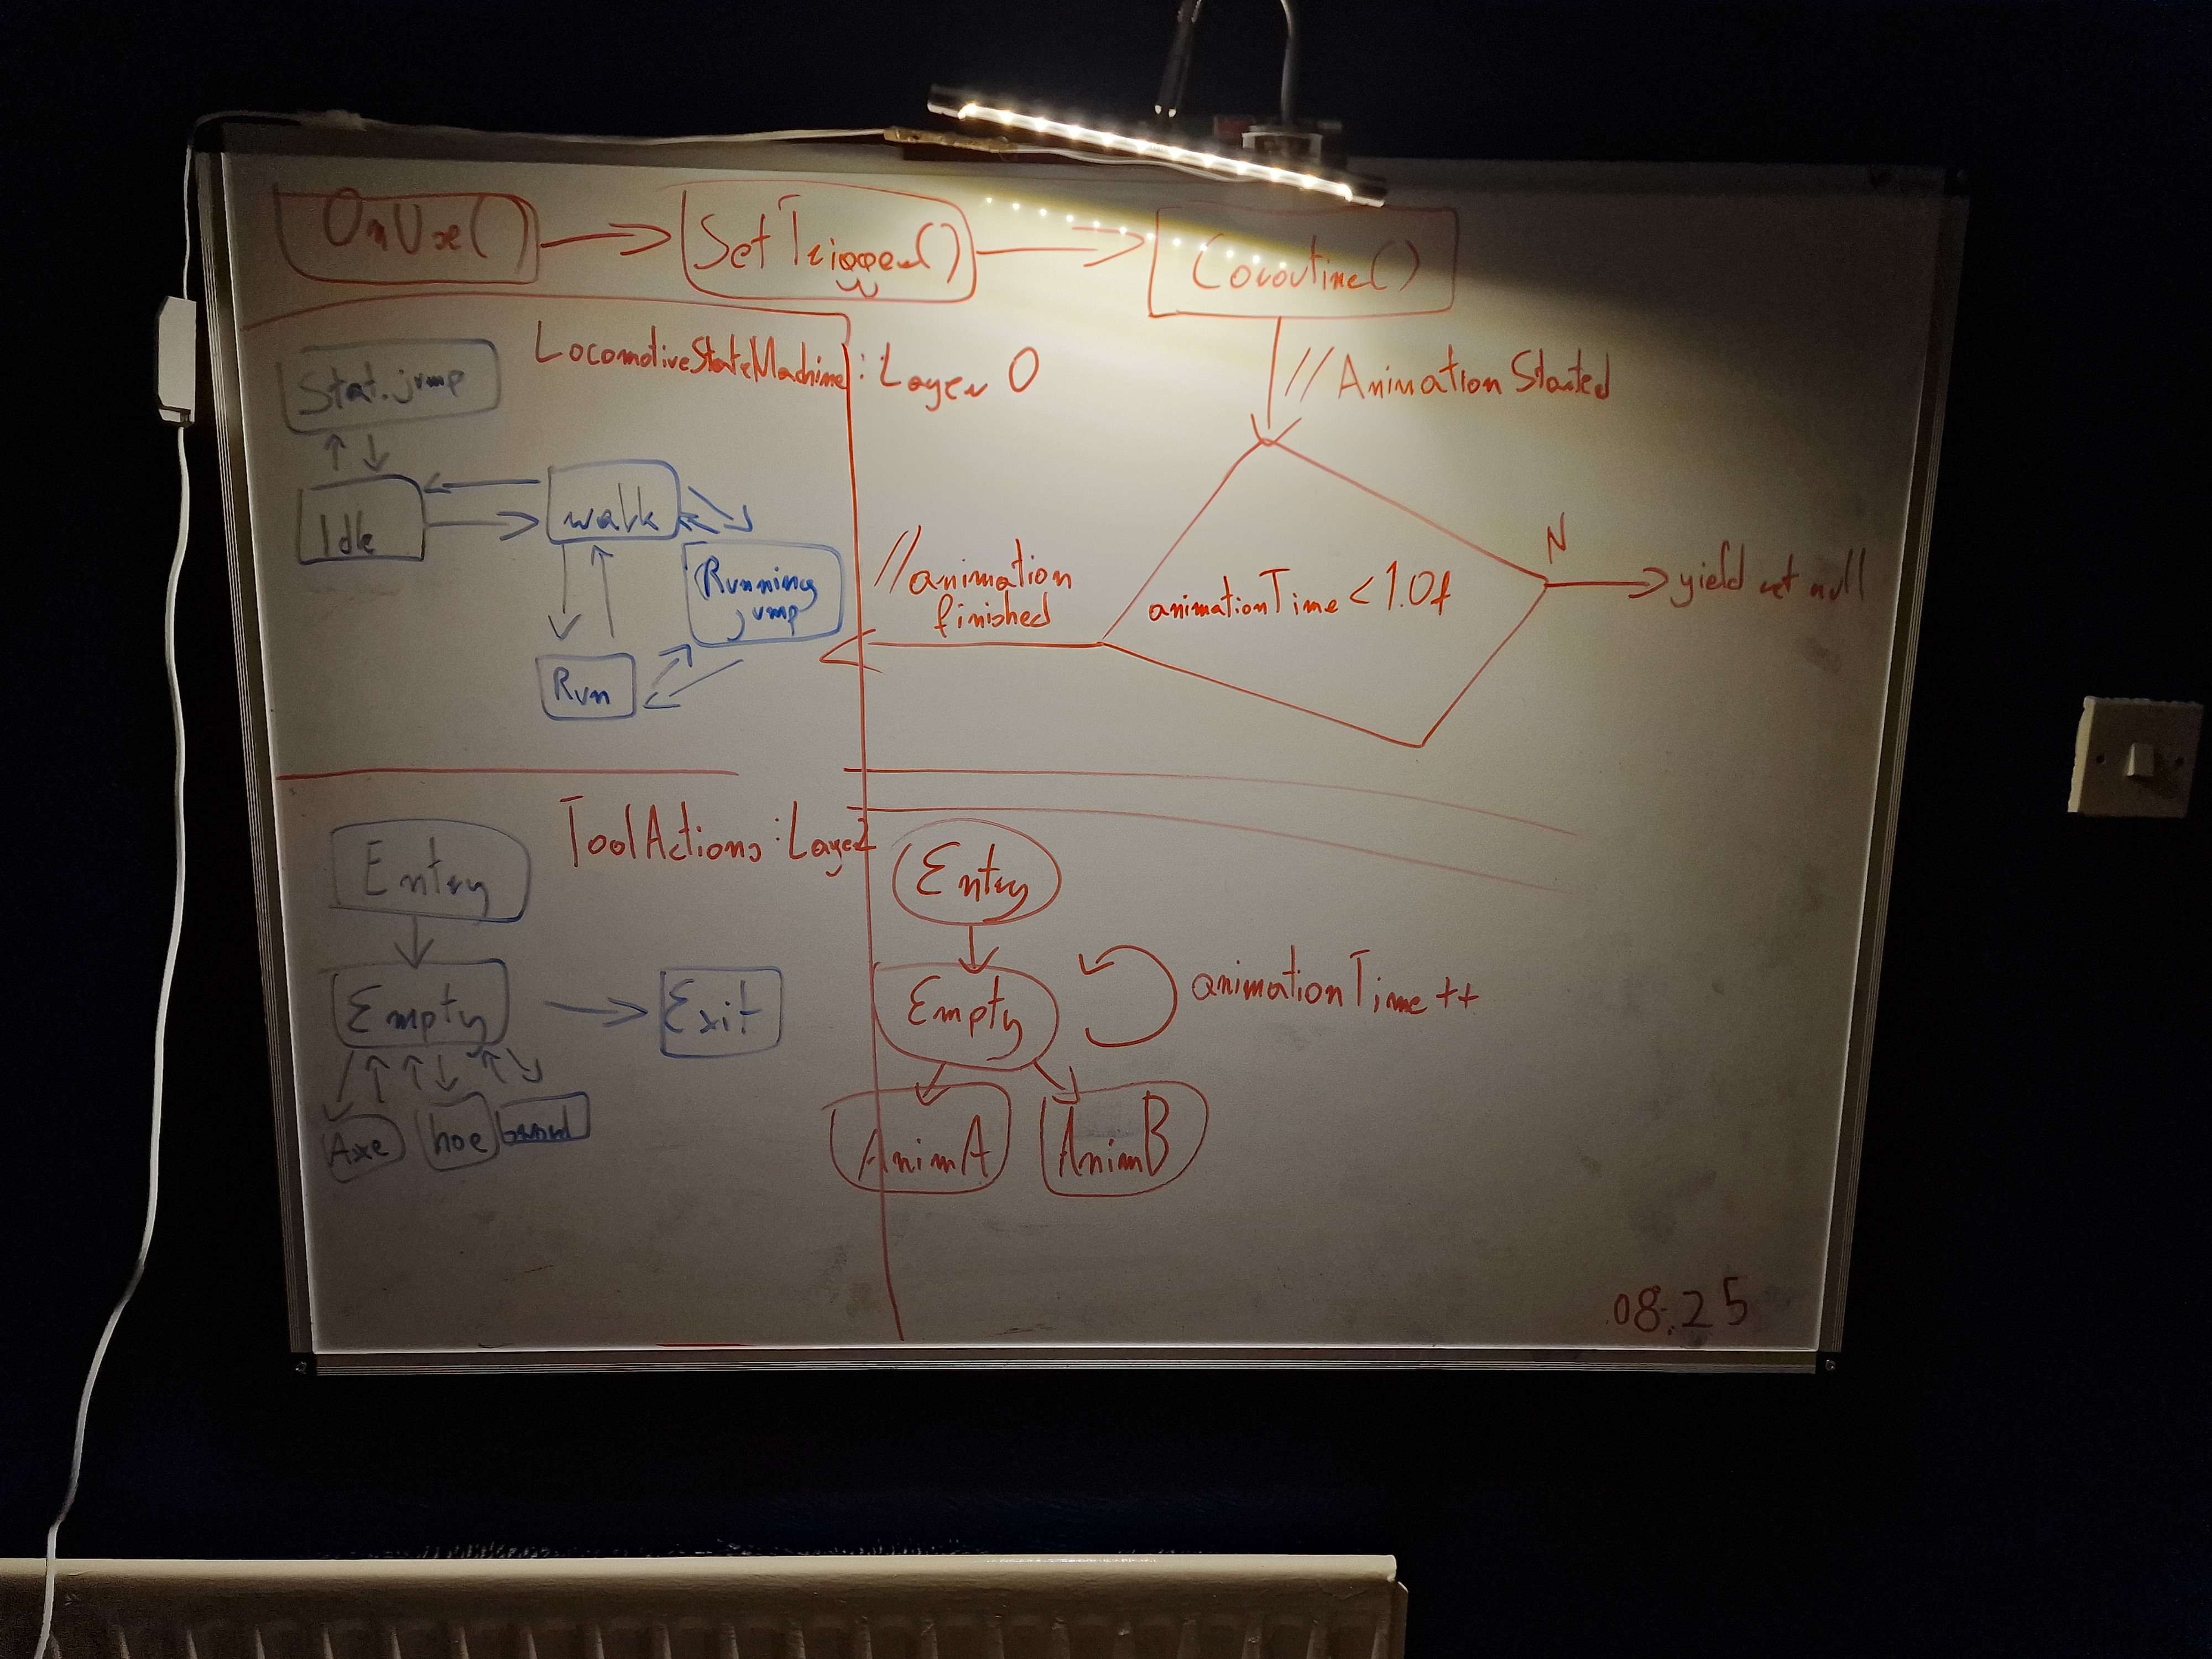 OnUse()
SetTrigger()
Coroutine()
LocomotiveStateMachine: Layer 0
// Animation Started
Stat. jump
Idle
walk
Running
jump
Run
// animation
finished
animationTime < 1.0f
N
yield ret null
ToolActions: Layer
Entry
Empty
Exit
Axe
hoe
Entry
Empty
animationTime ++
AnimA
AnimB
08:25